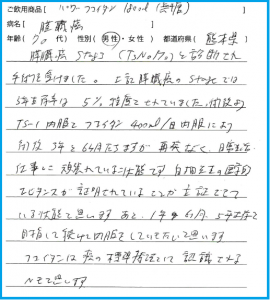 ご飲用商品【 パワーフコイダン
病名【 膵臓癌 】
年齢( 70 代) 性別( 男性・女性 ) 都道府県( 熊本県
膵臓癌 Stage と診断され
手術を受けました。上記膵臓癌のStageでは
5年生存率は 5% 程度とされていました。術後
TS-1 内服とフコイダン 400ml/日 内服により
術後 3年と6ヶ月たちますが 再発なく、日常生活
仕事に 頑張れている状態です
エビデンスが 証明されていることが 立証できて
いる状態と思います あと、1年 6ヶ月、5年生存を
目指して 続けて内服をしていきたいと思います
フコイダンは 癌の標準療法として 認識できる
と思います